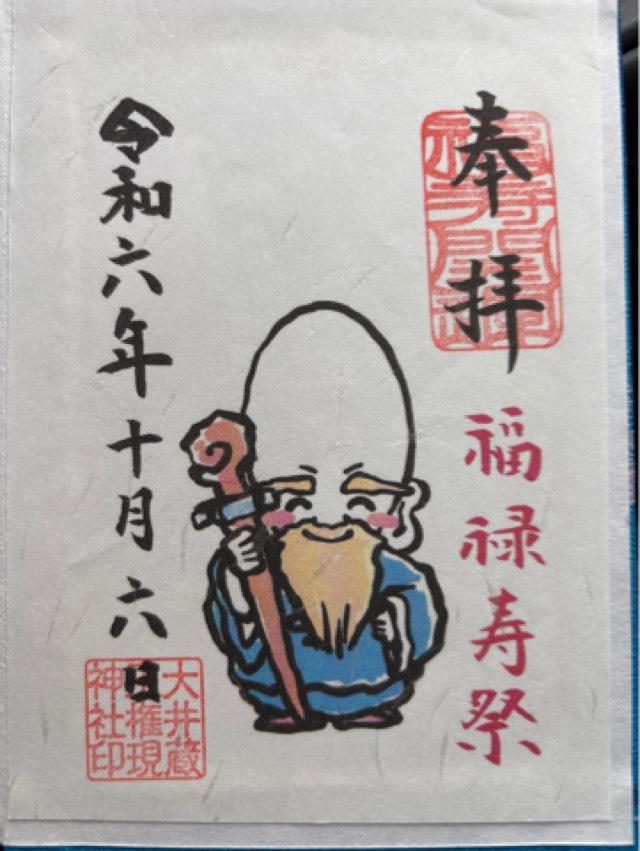 奉拝
福禄寿祭
令和六年十月六日
大井蔵
権現
神社印